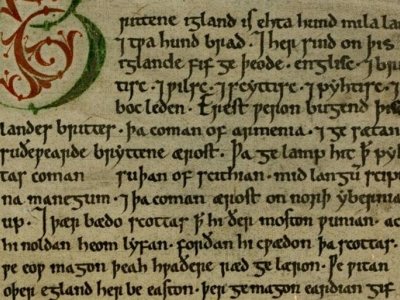 Brittene igland is ehta hund mila lan
⁊ tƿa hund brad. ⁊ her sind on þis
iglande fif ge þeode. englisc. ⁊ bri
tisc. ⁊ ƿilsc. ⁊ scyttisc. ⁊ pyhtisc. ⁊
boc leden. Erest ƿeron bugend þis
landes brittes. þa coman of armenia. ⁊ ge sætan
suðeƿearde bryttene ærost. Þa ge lamp hit ꝥ pyh
tas coman suþan of scithian. mid langū scipū
na manegum. ⁊ þa coman ærost on norþ ybernia
up. ⁊ þær bædo scottas ꝥ hi ðer moston ƿunian. ac
hi noldan heom lyfan. forðan hi cƿædon þa scottas.
ƿe eoƿ magon þeah hƿaðere ræd ge læron. Ƿe ƿitan
oþer egland her be easton. þer ge magon eardian gif